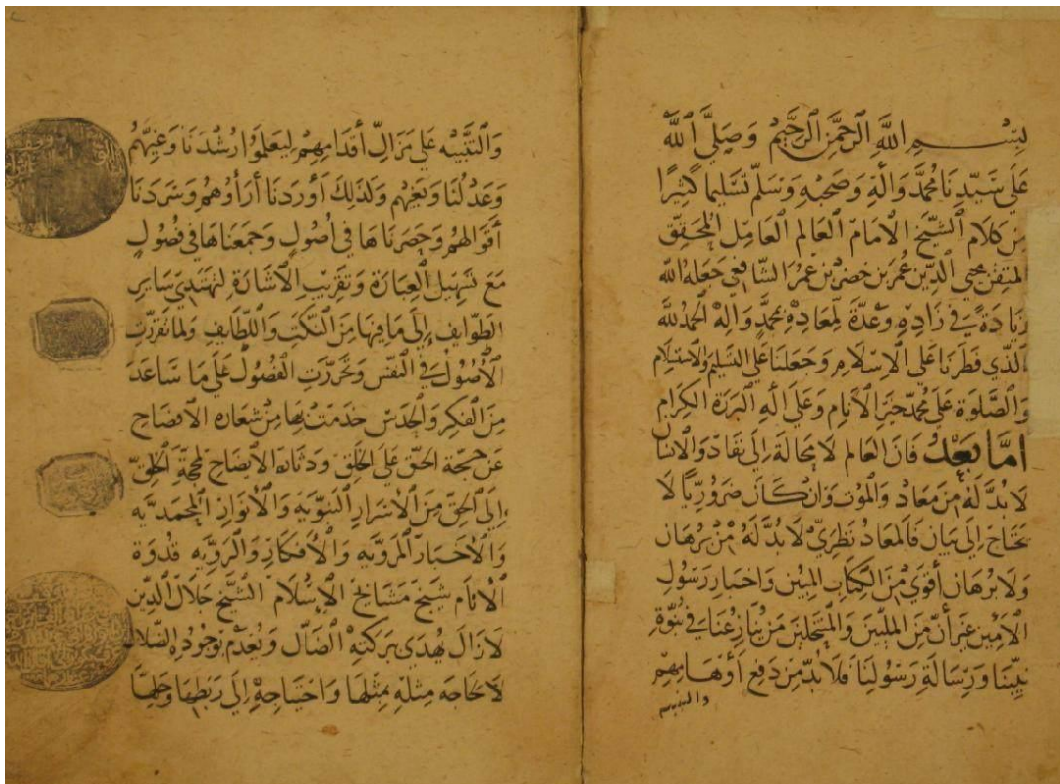 بِسْمِ اللَّهِ الرَّحْمَنِ الرَّحِيمِ وَصَلَّى اللَّهُ
عَلَى سَيِّدِنَا مُحَمَّدٍ وَآلِهِ وَصَحْبِهِ وَسَلَّمَ تَسْلِيمًا كَثِيرًا
مِنْ كَلَامِ الشَّيْخِ الْإِمَامِ الْعَالِمِ الْعَامِلِ الْمُحَقِّقِ
المتقن محيي الدين عُمَر بن خضر بن عمر الشافعي جعله الله
زيادة في زاده وعدة لمعاده بمحمد وآله الحمد لله
الذي فطرنا على الاسلام وجعلنا على التسليم والاستسلام
والصلوة على محمد خير الأنام وعلى اله البررة الكرام
أما بعد فان العالم لا محالة إلى نفاد والانسان
لا بد له من معاد والموت وان كان ضروريًا لا
يحتاج إلى بيان فالمعاد نظري لا بد له من برهان
ولا برهان أقوى من الكتاب المبين واخبار رسول
الأمين غير أن من المليين والمنتحلين من ينازعنا في نبوة
نبينا ورسالة رسولنا فلا بد من دفع أوهامهم
والتنبيه
والتنبيه على مزال أقدامهم ليعلموا رشدنا وغيهم
وعدلنا وبغيهم ولذلك أوردنا أراؤهم وسردنا
أقوالهم وحصرناها في أصول وجمعناها في فصول
مع تسهيل العبارة وتقريب الاشارة لتهتدي ساير
الطوايف إلى ما فيها من النكت واللطايف ولما تقررت
الأصول في النفس وتحررت الفصول على ما ساعد
من الفكر والحدس خدمت بها من شعاره الافصاح
عن حجة الحق على الخلق ودثاره الايضاح لمحجة الخلق
إلى الحق من الاسرار النبوية والأنوار المحمدية
والأخبار المروية والأفكار والروية قدوة
الأنام شيخ مشايخ الإسلام الشيخ جلال الدين
لا زال يهدى ببركته الضال ويعدم بوجوده الضلال
لا لحاجة مثله بمثلها واحتياجه إلى ربطها وحلها